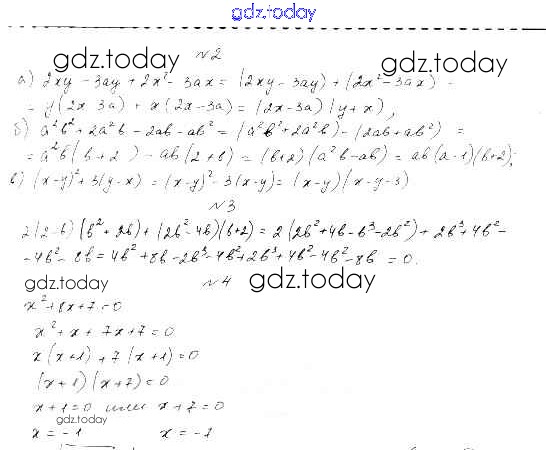 gdz.today
№2
gdz.today gdz.today
а) 2xy - 3ay + 2x² - 3ax = (2xy - 3ay) + (2x² - 3ax) =
= y(2x 3a) + x(2x - 3a) = (2x - 3a)(y + x),
б) a²b² + 2a²b - 2ab - ab² = (a²b² + 2a²b) - (2ab + ab²) =
= a²b(b + 2) - ab(2 + b) = (b+2)(a²b - ab) = ab(a - 1)(b + 2);
в) (x-y)² + 3(y-x) = (x-y)² - 3(x-y) = (x-y)(x-y-3)
№3
2(2-b)(b² + 2b) + (2b² - 4b)(b+2) = 2(2b² + 4b - b³ - 2b²) + 2b³ + 4b² -
- 4b² - 8b = 4b² + 8b - 2b³ - 4b² + 2b³ + 4b² - 4b² - 8b = 0.
gdz.today
№4
gdz.today
x² + 8x + 7 = 0
x² + x + 7x + 7 = 0
x(x+1) + 7(x+1) = 0
(x+1)(x+7) = 0
x+1=0 или x+7=0
gdz.today
x = -1 x = -7